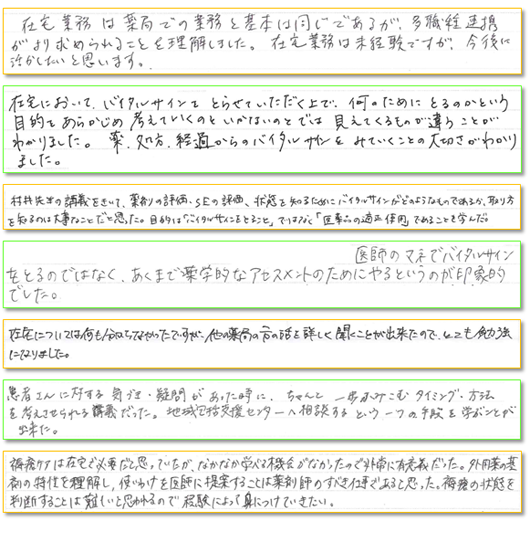 在宅業務は薬局での業務と基本は同じであるが、多職種連携
がより求められることを理解しました。在宅業務は未経験ですが、今後に
活かしたいと思います。
在宅において、バイタルサインをとらせていただく上で、何のためにとるのかという
目的をあらかじめ考えていくのといかないのとでは見えてくるものが違うことが
わかりました。薬、処方、経過からのバイタルサインをみていくことの大切さがわかり
ました。
村井先生の講義をきいて、薬剤の評価、SEの評価、状態を知るためにバイタルサインがどのようなものであるか、取り方
を知るのは大事なことだと思った。目的は「バイタルサインをとること」ではなく「医薬品の適正使用」であることを学んだ。
医師のマネでバイタルサイン
をとるのではなく、あくまで薬学的なアセスメントのためにやるというのが印象的
でした。
在宅については何も分からなかったですが、他の薬局の方の話を詳しく聞くことが出来たので、とても勉強
になりました。
患者さんに対する気づき・疑問があった時に、ちゃんと一歩ふみこむタイミング・方法
を考えさせられる講義だった。地域包括支援センターへ相談するという一つの手段を学ぶことが
出来た。
褥瘡ケアは在宅で必要だと思っていたが、なかなか学べる機会がなかったので非常に有意義だった。外用薬の基
剤の特性を理解し、使いわけを医師に提案することは薬剤師のすべき仕事であると思った。褥瘡の状態を
判断することは難しいと思われるので経験によって身につけていきたい。